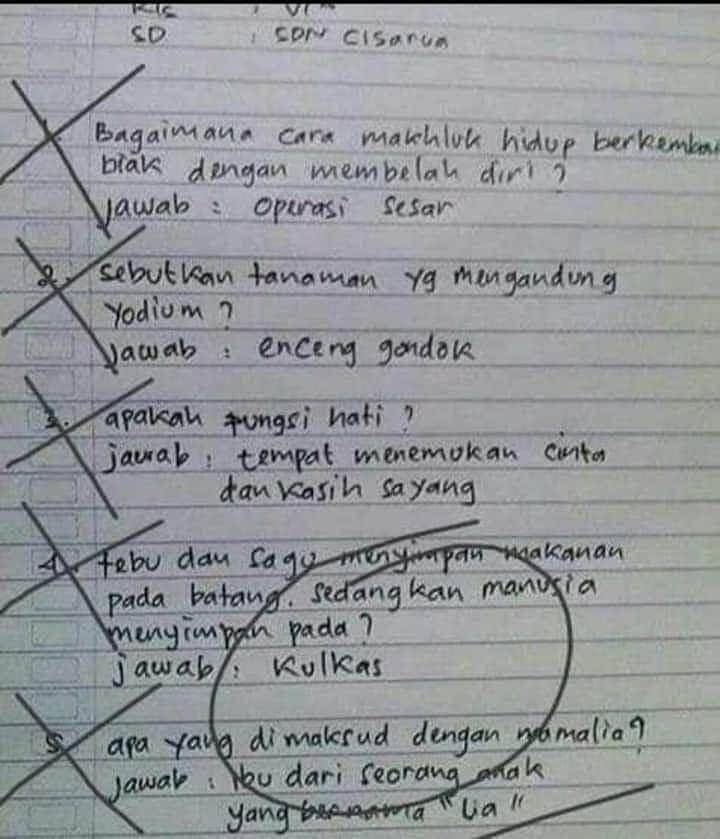 SD : SDN Cisarua
Bagaimana cara makhluk hidup
biak dengan membelah diri ?
jawab : operasi sesar
2. sebutkan tanaman yg mengandung
yodium ?
jawab : enceng gondok
3. apakah fungsi hati ?
jawab : tempat menemukan cinta
dan kasih sayang
4. tebu dan sagu menyimpan makanan
pada batang. sedangkan manusia
menyimpan pada ?
jawab : kulkas
5. apa yang dimaksud dengan mamalia?
jawab : Ibu dari seorang anak
yang bernama "Lia"